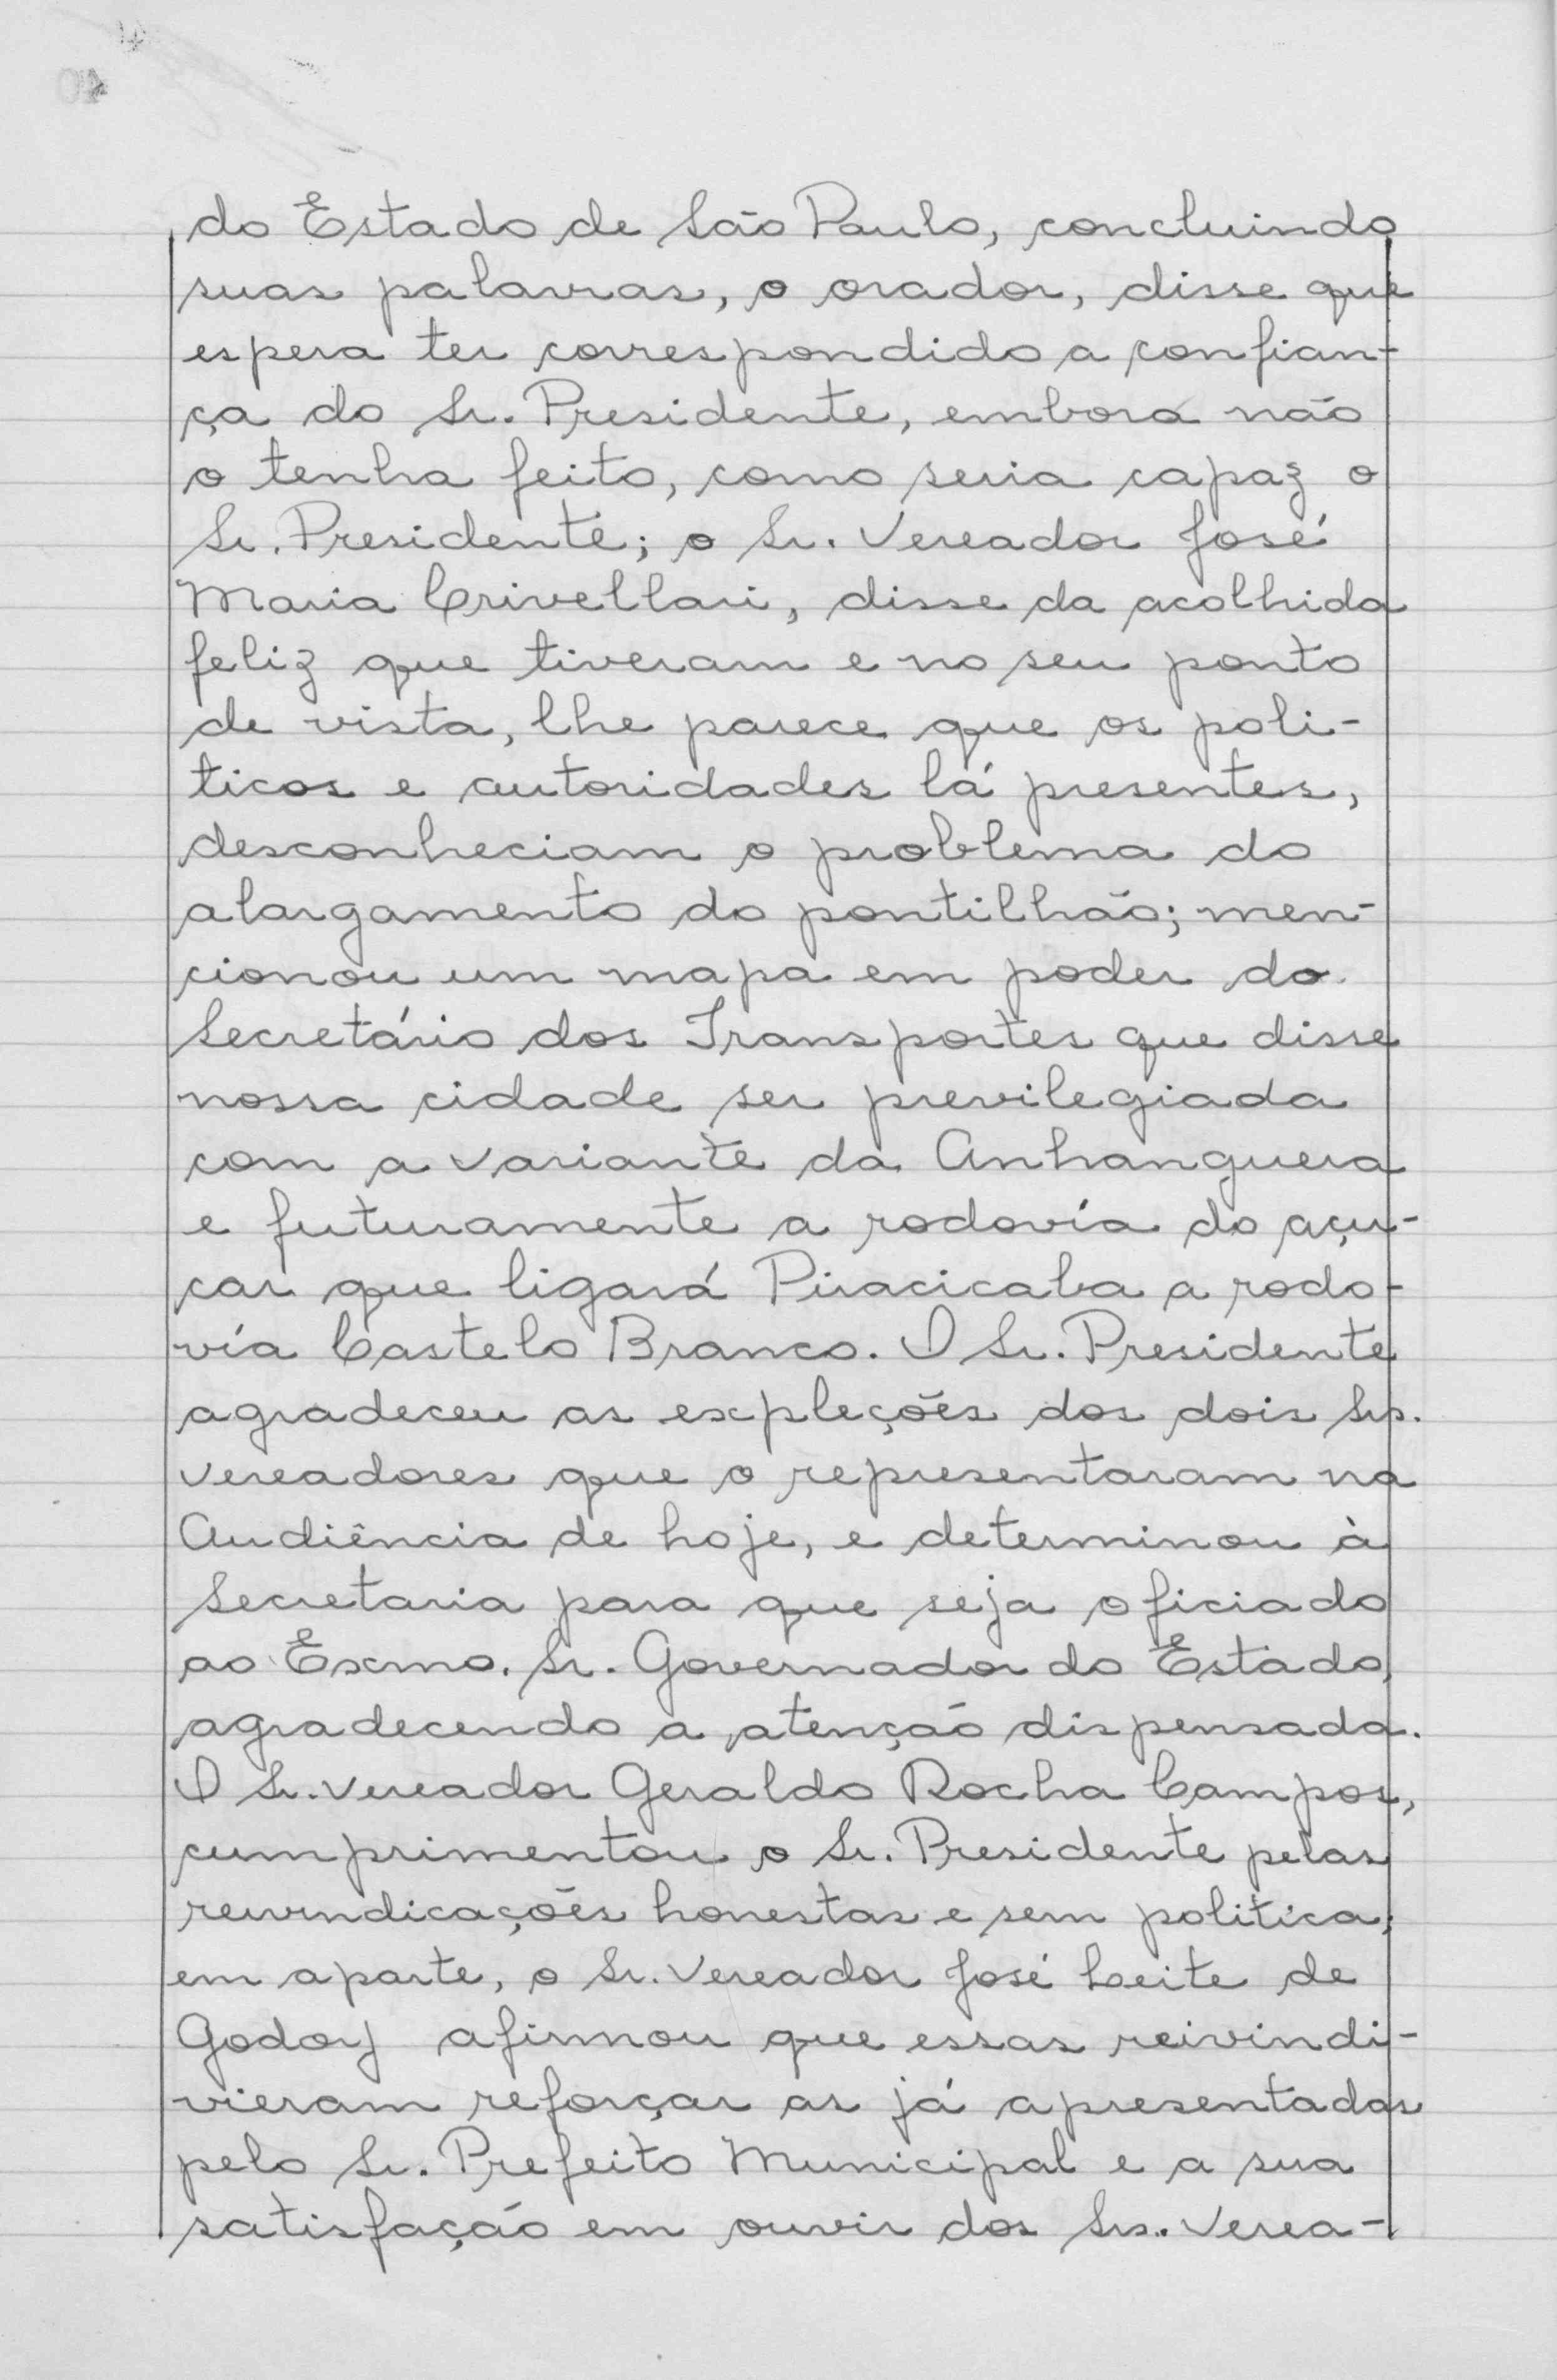 do Estado de São Paulo, concluindo
suas palavras, o orador, disse que
espera ter correspondido a confian-
ça do Sr. Presidente, embora não
o tenha feito, como seria capaz o
Sr. Presidente; o Sr. Vereador José
Maria Crivellari, disse da acolhida
feliz que tiveram e no seu ponto
de vista, lhe parece que os poli-
ticos e autoridades lá presentes,
desconheciam o problema do
alargamento do pontilhão; men-
cionou um mapa em poder do
Secretário dos Transportes que disse
nossa cidade ser previlegiada
com a variante da Anhanguera
e futuramente a rodovia do açu-
car que ligará Piracicaba a rodo-
vía Castelo Branco. O Sr. Presidente
agradeceu as expleções dos dois Srs.
Vereadores que o representaram na
Audiência de hoje, e determinou à
Secretaria para que seja oficiado
ao Exmo. Sr. Governador do Estado,
agradecendo a atenção dispensada.
O Sr. Vereador Geraldo Rocha Campos,
cumprimentou o Sr. Presidente pelas
reivindicações honestas e sem politíca;
em aparte, o Sr. Vereador José Leite de
Godoy afirmou que essas reivindi-
vieram reforçar as já apresentadas
pelo Sr. Prefeito Municipal e a sua
satisfação em ouvir dos Srs. Verea-